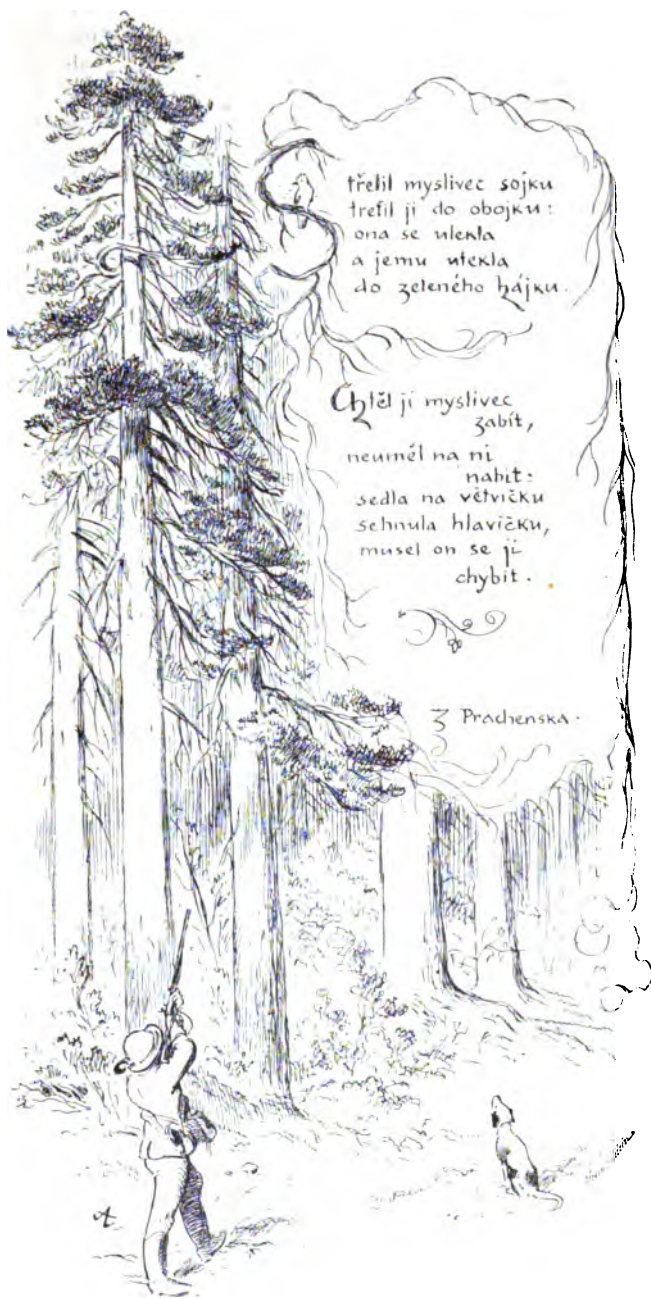 Střelil myslivec sojku
trefil ji do obojku:
ona se ulekla
a jemu utekla
do zeleného hájku.
Chtěl ji myslivec
zabít,
neuměl na ni
nabít:
sedla na větvičku
sehnula hlavičku,
musel on se jí
chybit.
Z Prachenska.